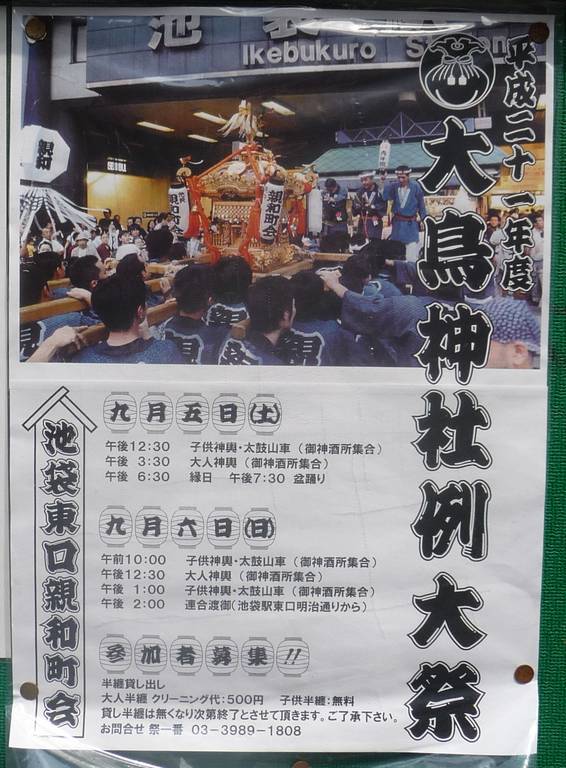 平成二十一年度
大鳥神社例大祭
池袋
Ikebukuro
親和
親和町会
九月五日(土)
午後12:30 子供神輿・太鼓山車（御神酒所集合）
午後 3:30 大人神輿（御神酒所集合）
午後 6:30 縁日 午後7:30 盆踊り
九月六日(日)
午前10:00 子供神輿・太鼓山車（御神酒所集合）
午後12:30 大人神輿（御神酒所集合）
午後 1:00 子供神輿・太鼓山車（御神酒所集合）
午後 2:00 連合渡御(池袋駅東口明治通りから)
参加者募集!!
半纏貸し出し
大人半纏 クリーニング代：500円 子供半纏：無料
貸し半纏は無くなり次第終了とさせて頂きます。ご了承下さい。
お問合せ 祭一番 03-3989-1808
池袋東口親和町会